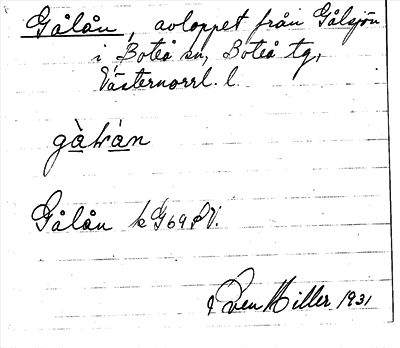 Gålån, avloppet från Gålsjön
i Boteå sn, Boteå tg,
Västernorrl. l.
gàlràn
Gålån k G69 SV.
Sven Hiller 1931